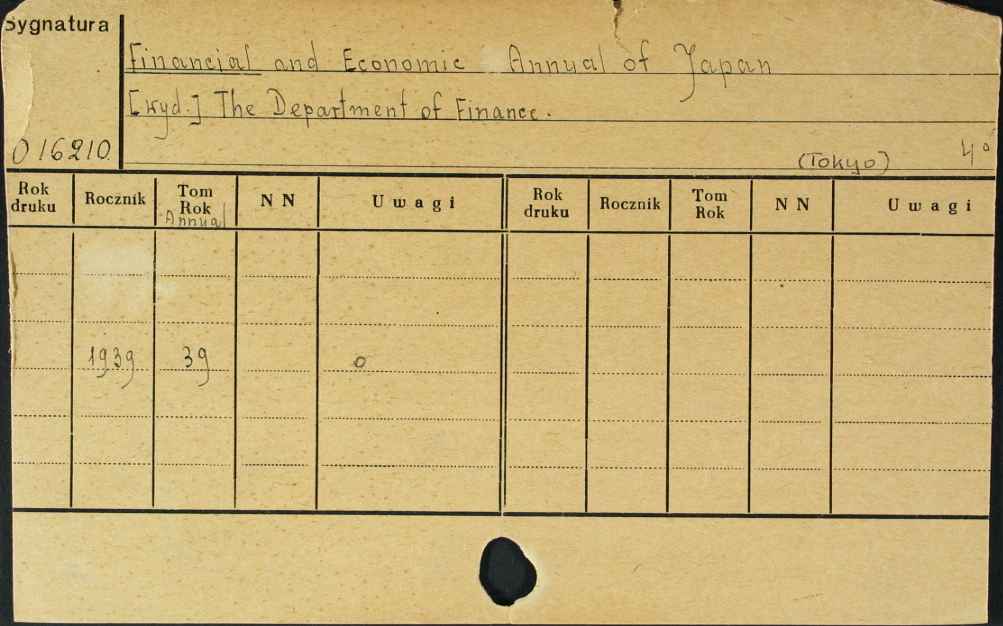 Sygnatura
Financial and Economic Annual of Japan
[wyd.] The Department of Finance.
O 16210.
(Tokyo) 4°
Rok druku Rocznik Tom Rok Annual NN Uwagi Rok druku Rocznik Tom Rok NN Uwagi
1939 39 o